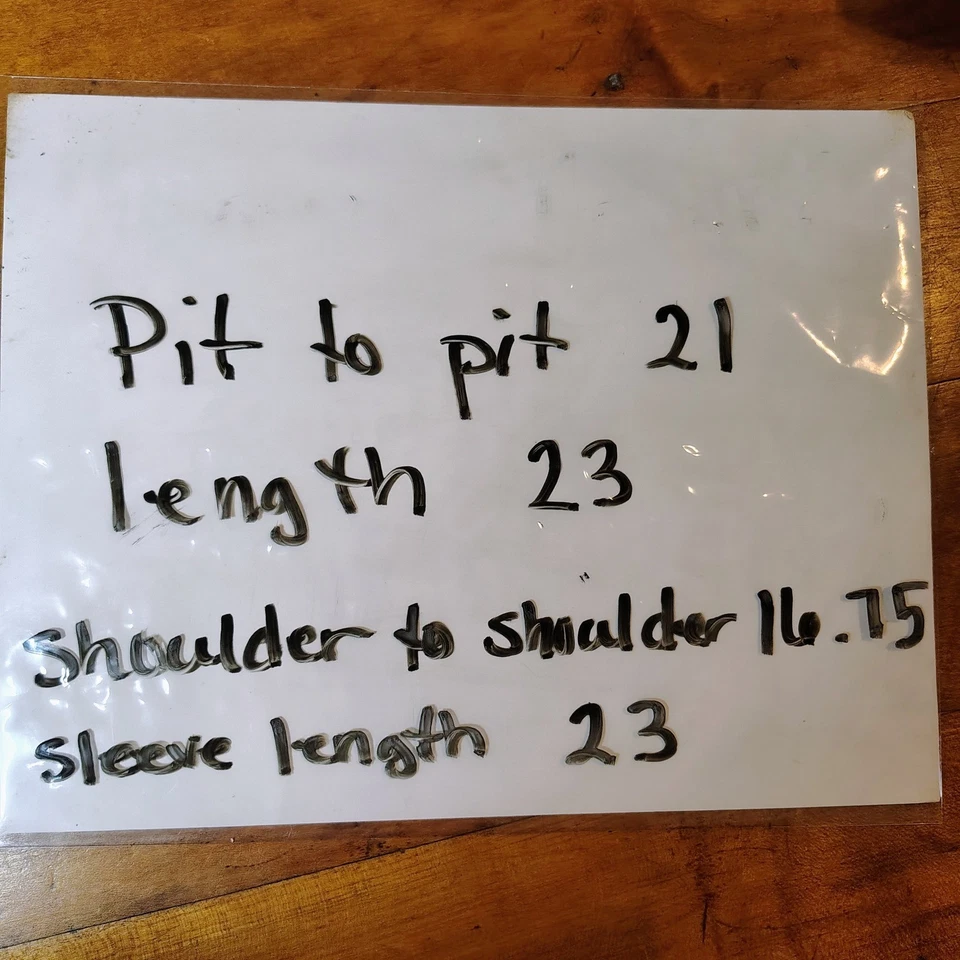 Pit to pit 21
length 23
Shoulder to shoulder 16.75
sleeve length 23